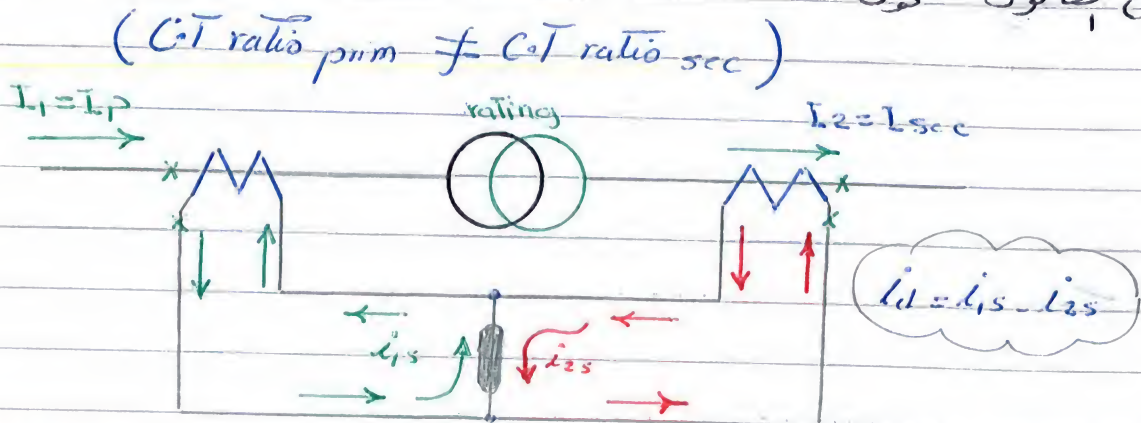 (C.T ratio prim ≠ C.T ratio sec)
I₁ = Ip
rating
I₂ = Isec
id = i₁s - i₂s
i₁s
i₂s